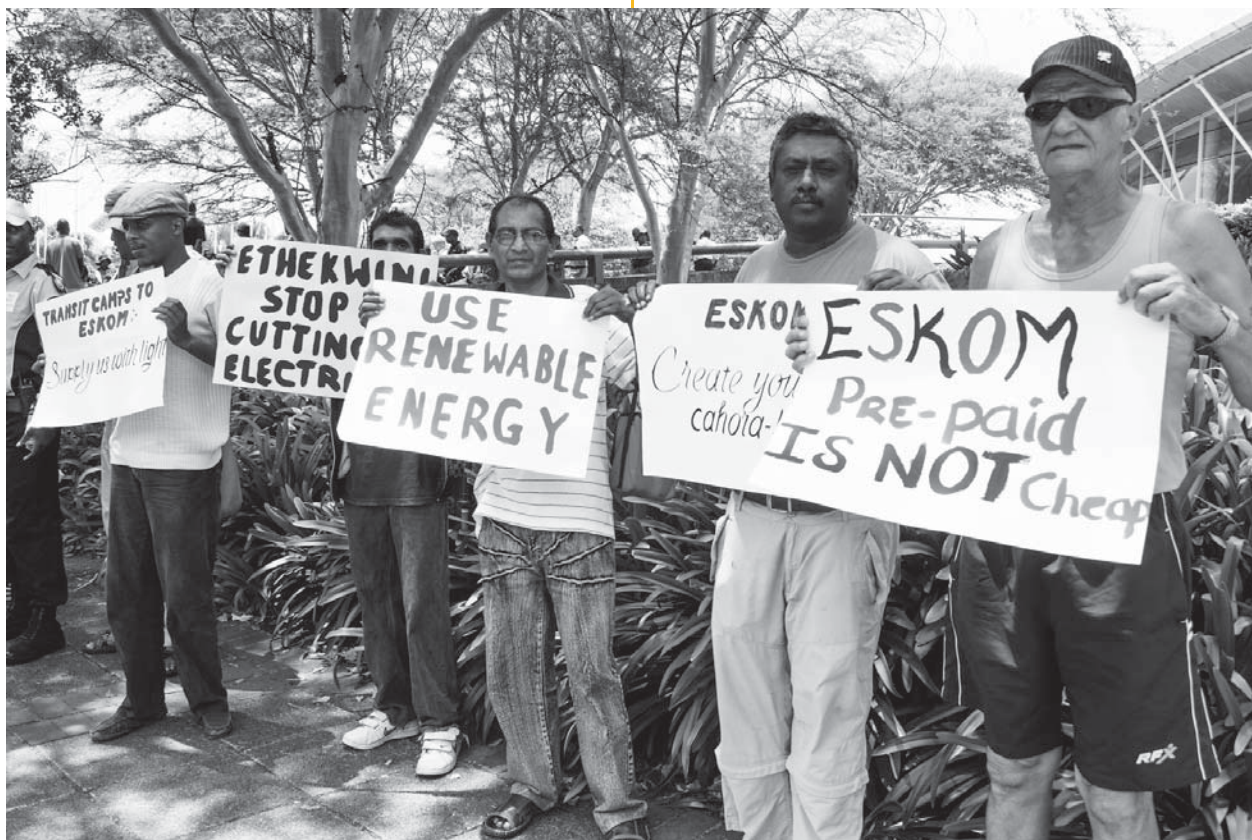 TRANSIT CAMPS TO
ESKOM:-
Supply us with light
ETHEKWINI
STOP
CUTTING
ELECTRI
USE
RENEWABLE
ENERGY
ESKOM
Create you
cahora-
ESKOM
PRE-PAID
IS NOT Cheap
RFX